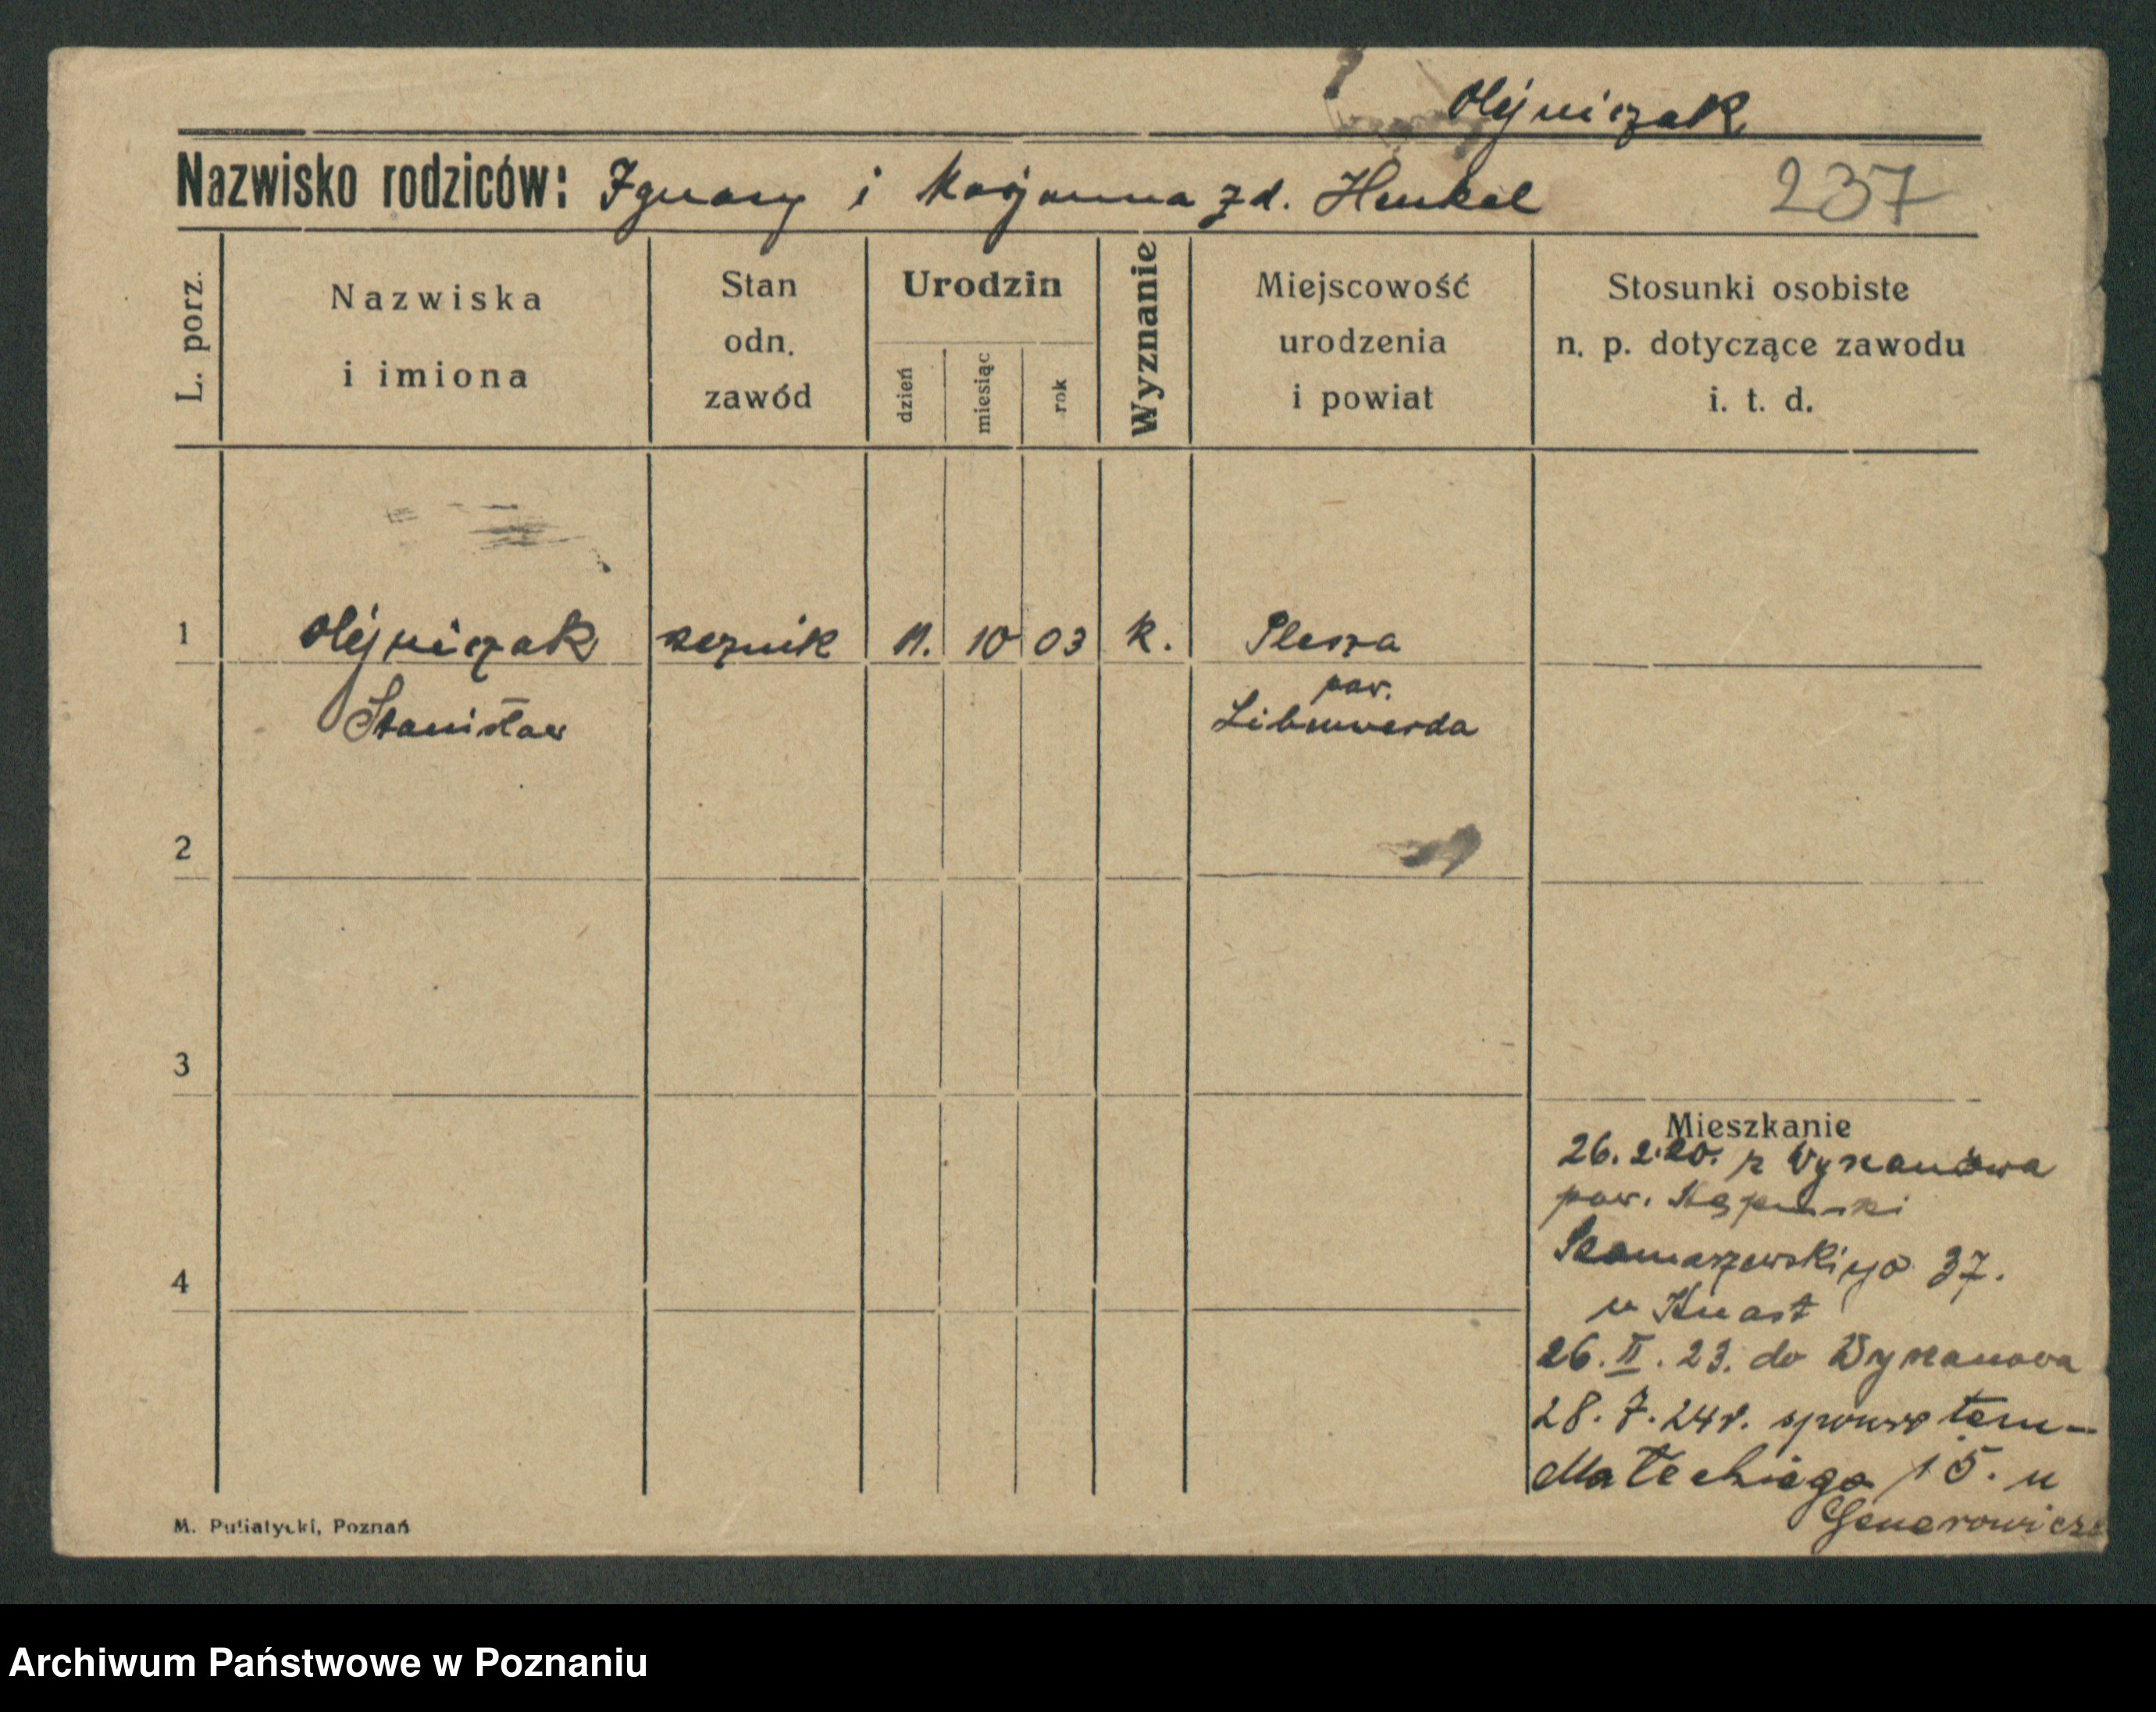 Olejniczak
Nazwisko rodziców: Ignacy i Marjanna zd. Henkel 237
L. porz.
Nazwiska
i imiona
Stan
odn.
zawód
Urodzin
dzień
miesiąc
rok
Wyznanie
Miejscowość
urodzenia
i powiat
Stosunki osobiste
n. p. dotyczące zawodu
i. t. d.
1 Olejniczak 11. 10 03 k. Plessa
pow.
Stanisław Libenwerda
2
3
Mieszkanie
26.2.20. z Wysanowa
pow.
Szamarzewskiego 37.
4
u Knast
26. II. 23. do Wysanowa
28. 7. 24 r.
Mateckiego 15. u
M. Putiatycki, Poznań
Archiwum Państwowe w Poznaniu